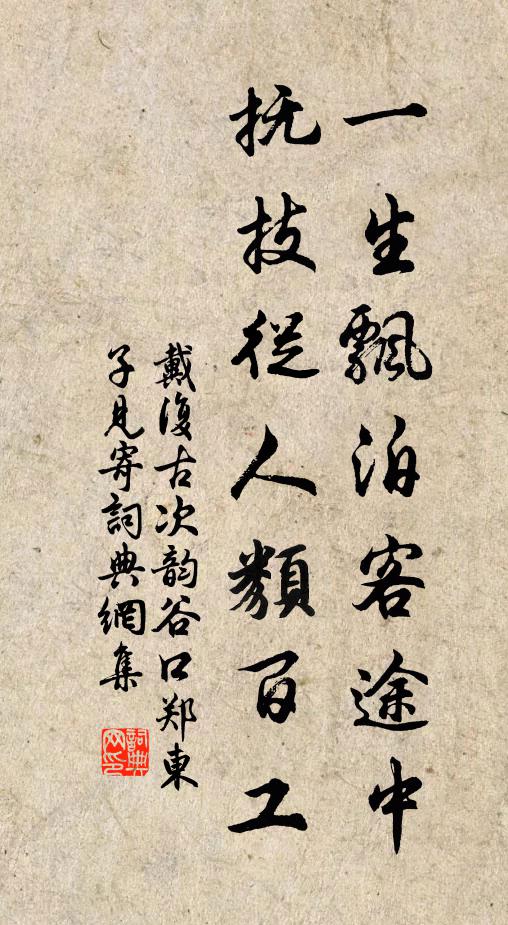 一生飄泊客途中
抚技從人類百工
戴復古次韵谷口郑東
子見寄詞典網集
詞典網印